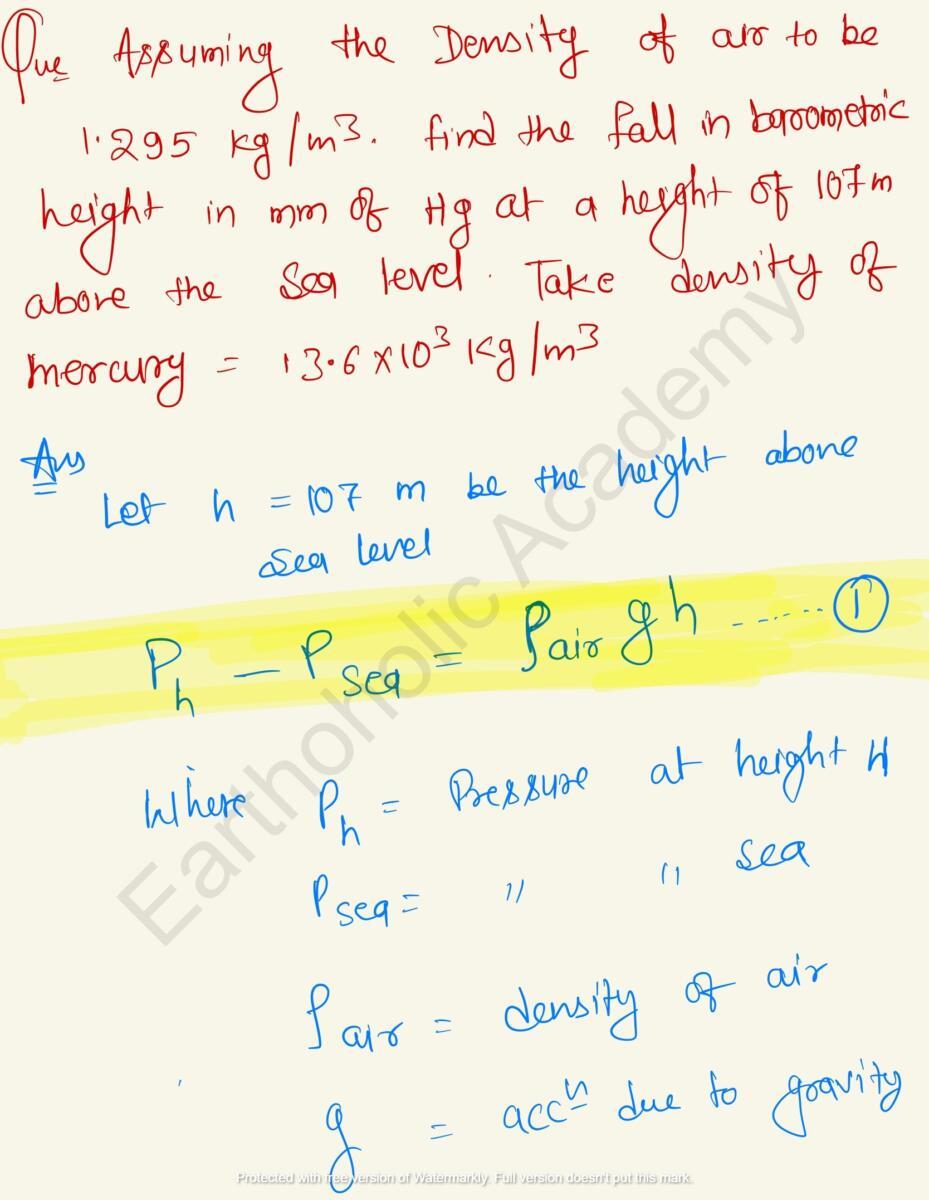 Que Assuming the Density of air to be
1.295 kg/m3. find the fall in barometric
height in mm of Hg at a height of 107m
above the Sea level. Take density of
mercury = 13.6 x 10³ Kg/m3
Ans
Let h = 107 m be the height above
sea level
Ph - Psea = ρair gh ...... ①
Where Ph = Pressure at height H
Psea = " " sea
ρair = density of air
g = accⁿ due to gravity
Earthoholic Academy
Protected with free version of Watermarkly. Full version doesn't put this mark.